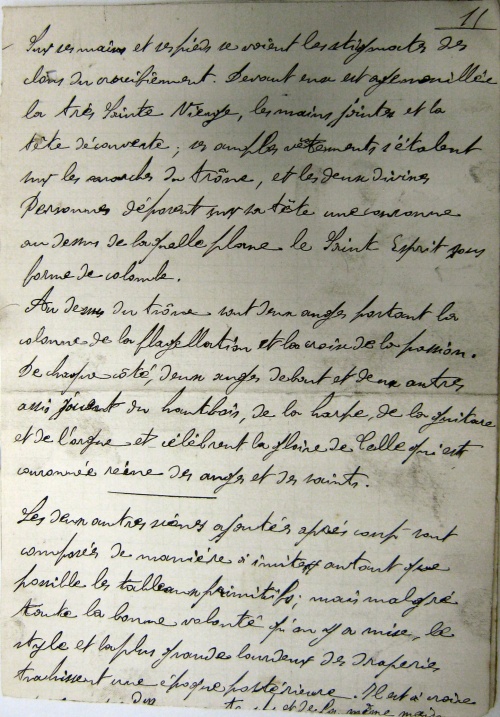 11
Sur ses mains et ses pieds se voient les stigmates des
clous du crucifiement. Devant eux est agenouillée
la très Sainte Vierge, les mains jointes et la
tête découverte; ses amples vêtements s'étalent
sur les marches du trône, et les deux divines
Personnes déposent sur sa tête une couronne
au dessus de laquelle plane le Saint Esprit sous
forme de colombe.
Au dessus du trône sont deux anges portant la
colonne de la flagellation et la croix de la passion.
De chaque côté, deux anges debout et deux autres
assis jouent du hautbois, de la harpe, de la guitare
et de l'orgue et célèbrent la gloire de Celle qui est
couronnée reine des anges et des saints.
Les deux autres scènes ajoutés après coup sont
composés de manière à imiter autant que
possible les tableaux primitifs; mais malgré
toute la bonne volonté qu'on y a mise, le
style et la plus grande lourdeur des draperies
trahissent une époque postérieure. Il est à croire
de la même main